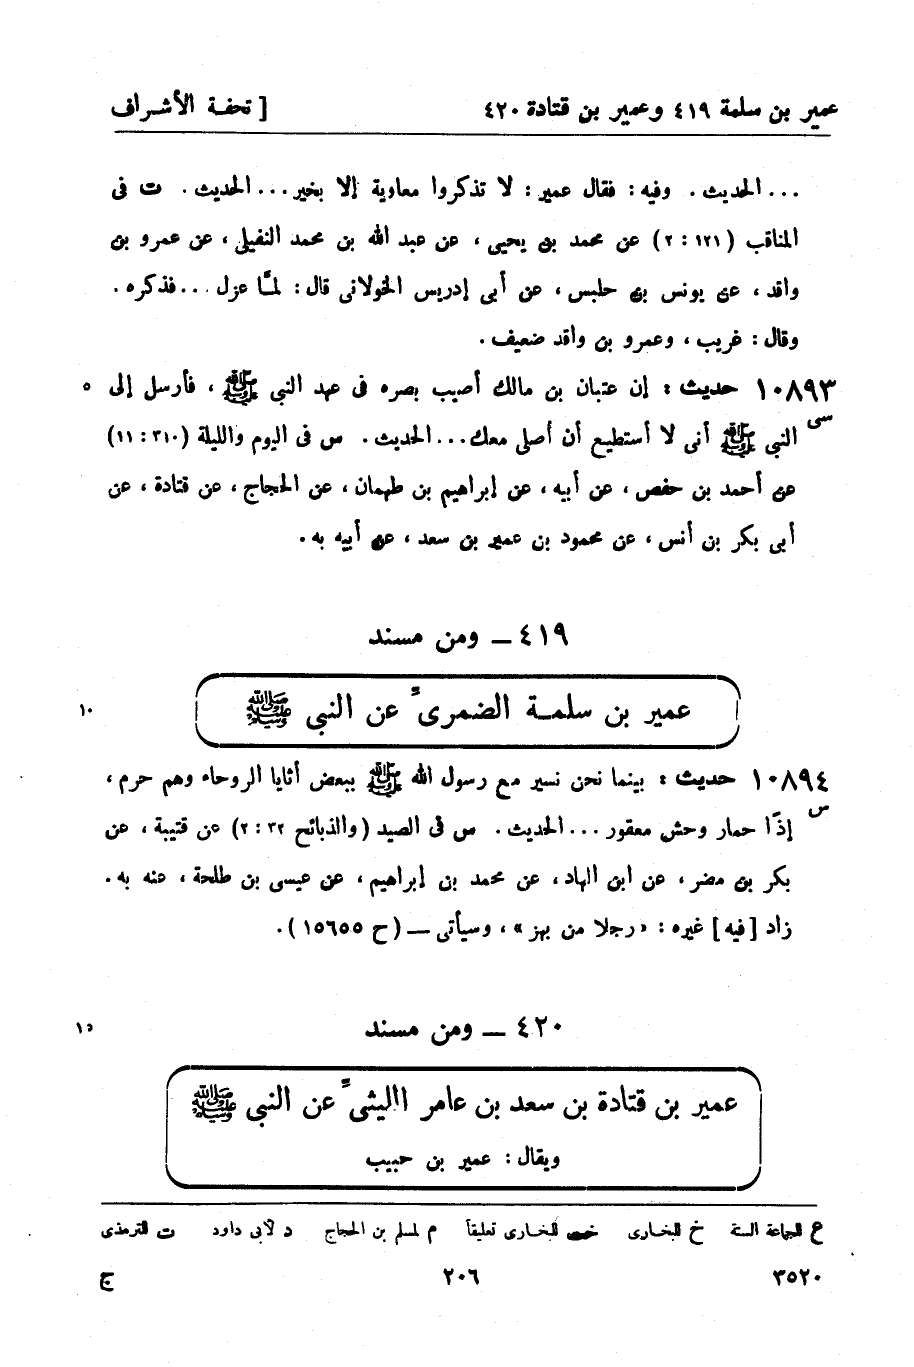 عمير بن سلمة ٤١٩ وعمير بن قتادة ٤٢٠ [ تحفة الأشراف
... الحديث . وفيه : فقال عمير : لا تذكروا معاوية إلا بخير ... الحديث . ت فى
المناقب ( ١٢١ : ٢ ) عن محمد بن يحيى ، عن عبد الله بن محمد النفيلى ، عن عمرو بن
واقد ، عن يونس بن حلبس ، عن أبى إدريس الخولانى قال : لمّا عزل ... فذكره .
وقال : غريب ، وعمرو بن واقد ضعيف .
١٠٨٩٣ حديث : إن عتبان بن مالك أصيب بصره فى عهد النبى ﷺ ، فأرسل إلى ٥
سى النبى ﷺ أنى لا أستطيع أن أصلى معك ... الحديث . س فى اليوم والليلة ( ٣١٠ : ١١ )
عن أحمد بن حفص ، عن أبيه ، عن إبراهيم بن طهمان ، عن الحجاج ، عن قتادة ، عن
أبى بكر بن أنس ، عن محمود بن عمير بن سعد ، عن أبيه به .
٤١٩ ــ ومن مسند
عمير بن سلمـة الضمرىّ عن النبى ﷺ ١٠
١٠٨٩٤ حديث : بينما نحن نسير مع رسول الله ﷺ ببعض أثايا الروحاء وهم حرم ،
س إذًا حمار وحش معقور ... الحديث . س فى الصيد ( والذبائح ٣٢ : ٢ ) عن قتيبة ، عن
بكر بن مضر ، عن ابن الهاد ، عن محمد بن إبراهيم ، عن عيسى بن طلحة ، عنه به .
زاد [ فيه ] غيره : « رجلا من بهز » ، وسيأتى ــ ( ح ١٥٦٥٥ ) .
٤٢٠ ــ ومن مسند ١٥
عمير بن قتادة بن سعد بن عامر الليثىّ عن النبى ﷺ
ويقال : عمير بن حبيب
ع للجماعة الستة خ للبخارى خت للبخارى تعليقاً م لمسلم بن الحجاج د لأبى داود ت للترمذى
٣٥٢٠ ٢٠٦ ج